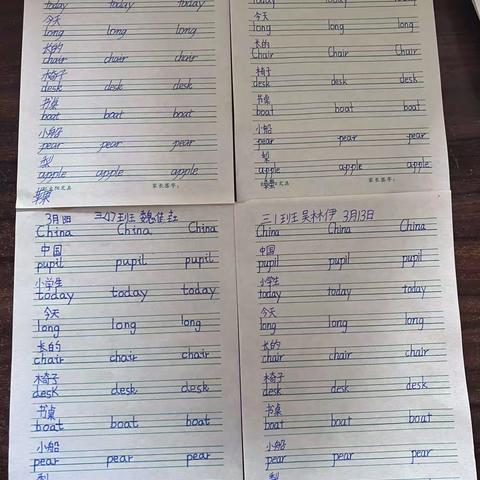 today today today
今天
long long long
长的
chair chair chair
椅子
desk desk desk
书桌
boat boat boat
小船
pear pear pear
梨
apple apple apple
家长签字:
today today today
今天
long long long
长的
Chair Chair Chair
椅子
desk desk desk
书桌
boat boat boat
小船
pear pear pear
梨
apple apple apple
家长签字:
China China China
中国
pupil pupil pupil
小学生
today today today
今天
long long long
长的
chair chair chair
椅子
desk desk desk
书桌
boat boat boat
小船
pear pear pear
梨
三1班 吴林伊 3月13日
China China China
中国
pupil pupil pupil
小学生
today today today
今天
long long long
长的
chair chair chair
椅子
desk desk desk
书桌
boat boat boat
小船
pear pear pear
梨